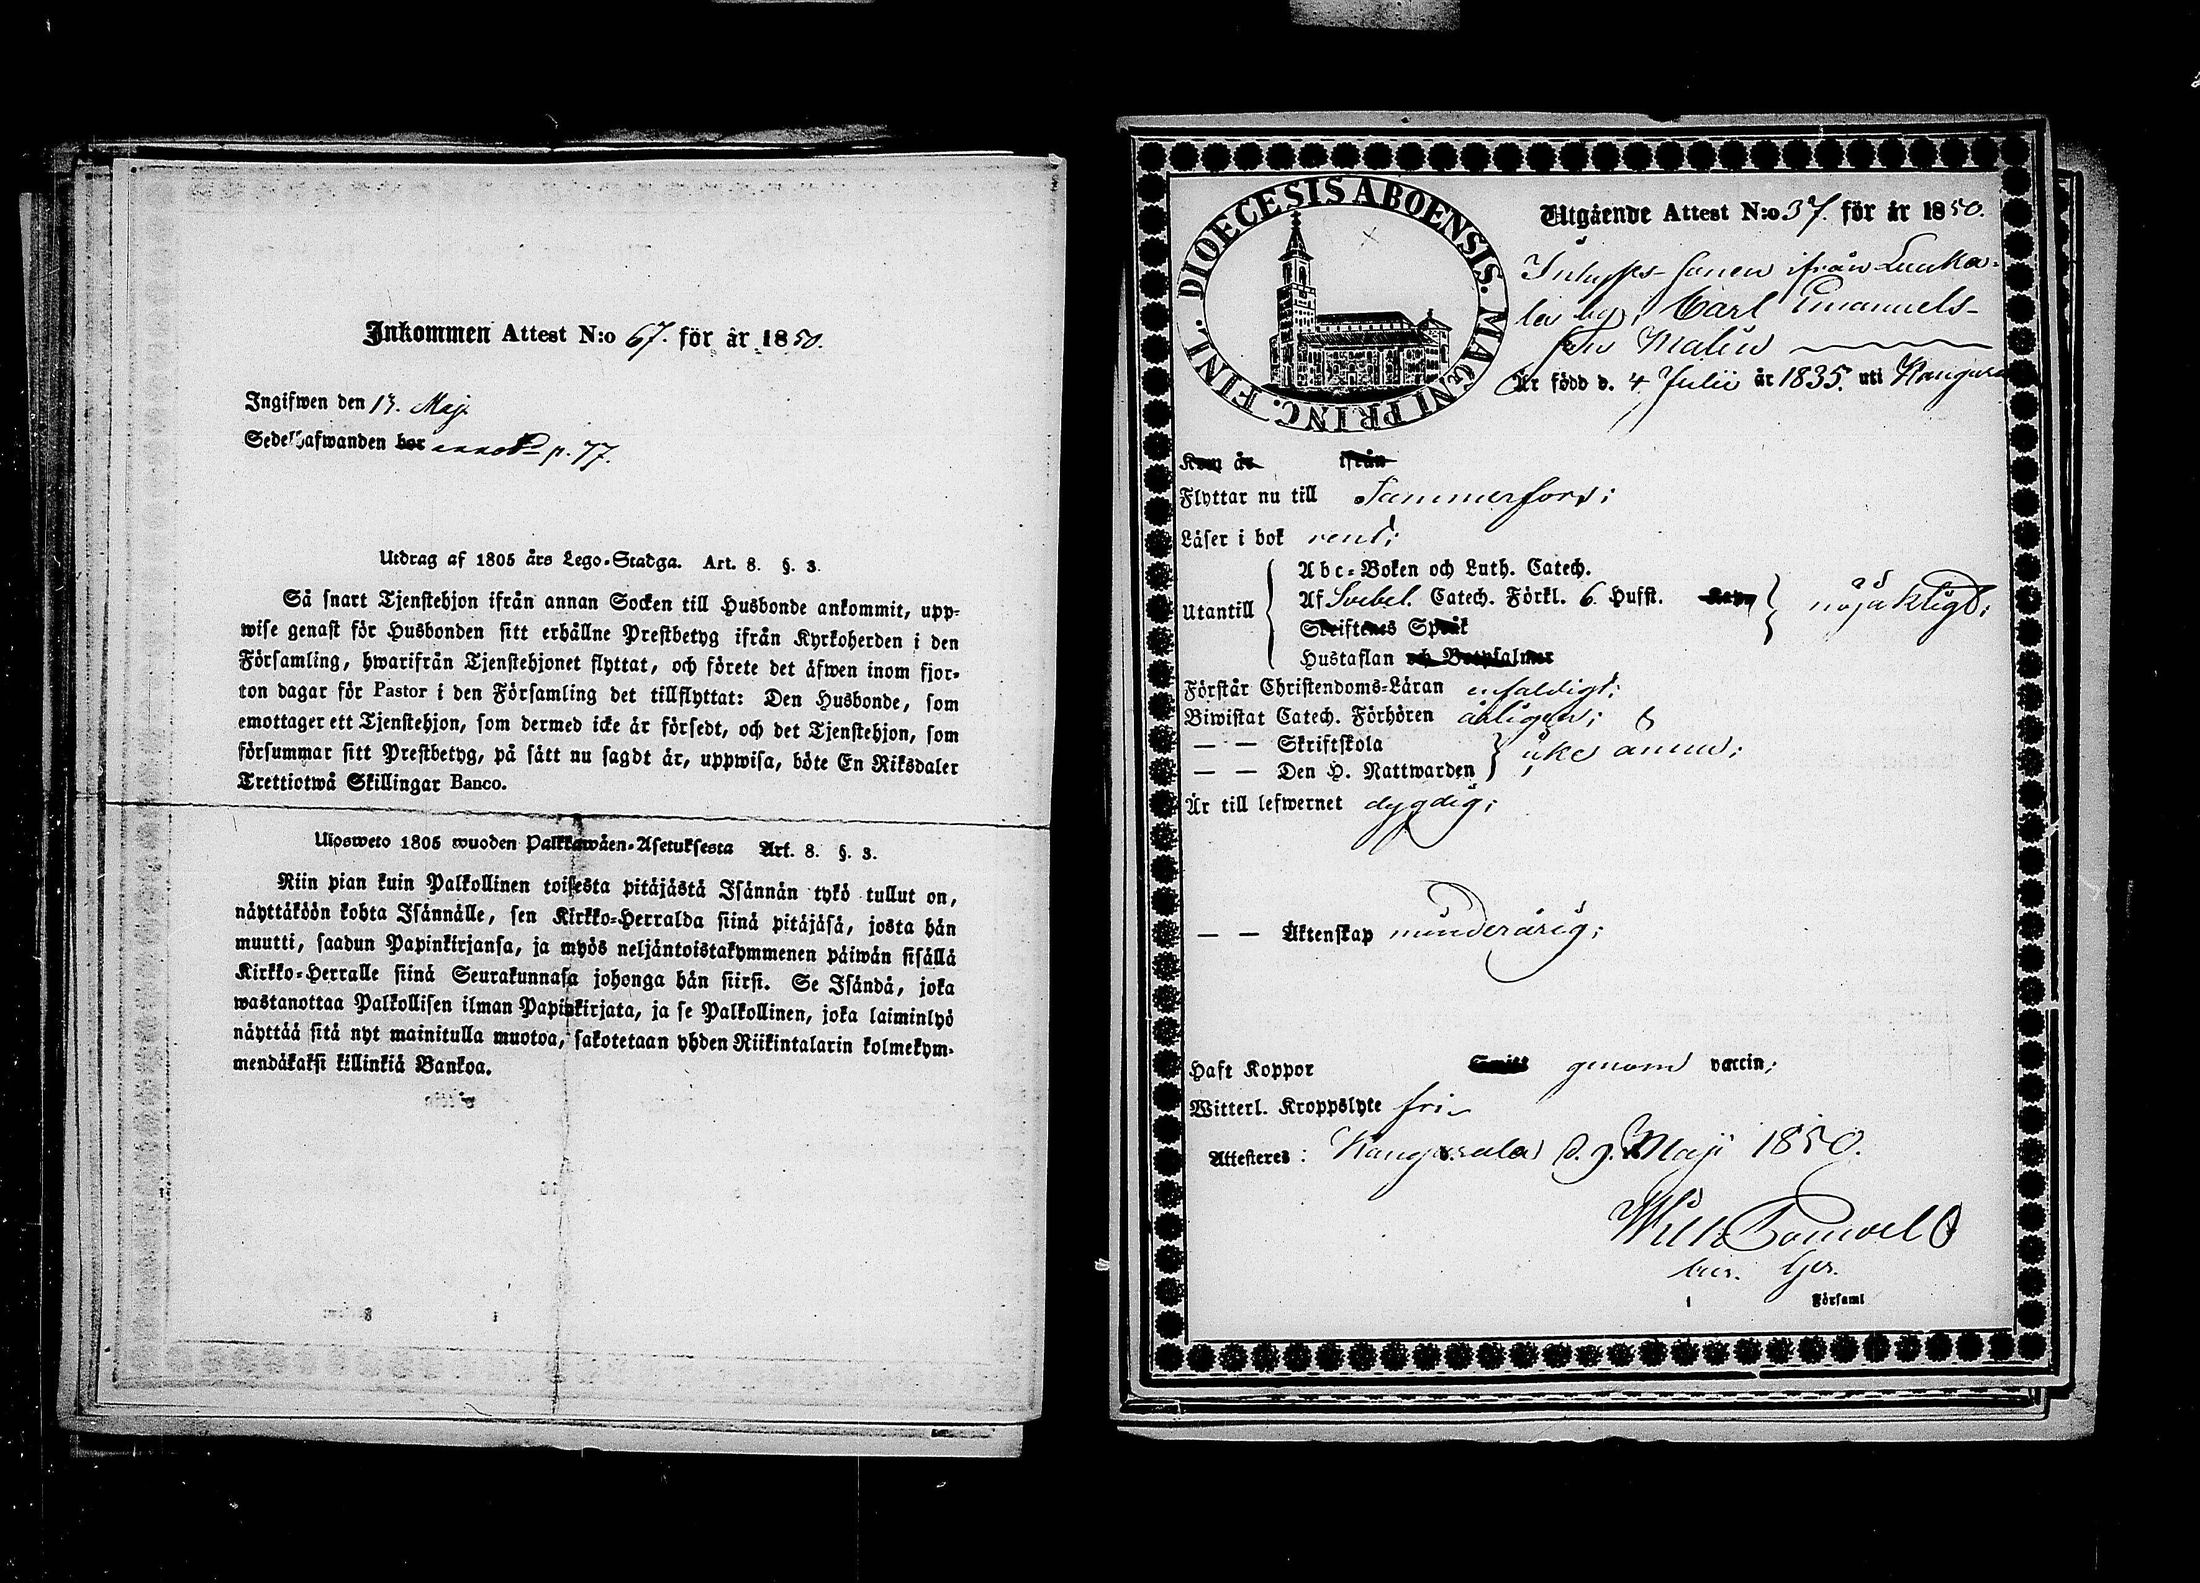 Inkommen Attest N:o 67. för år 1850.
Ingifwen den 13. Maji
Sedelhafwanden bor annot p. 77.
Utdrag af 1805 års Lego-Stadga. Art. 8. §. 3.
Så snart Tjenstehjon ifrån annan Socken till Husbonde ankommit, upp-
wise genast för Husbonden sitt erhållne Prestbetyg ifrån Kyrkoherden i den
Församling, hwarifrån Tjenstehjonet flyttat, och förete det äfwen inom fjor-
ton dagar för Pastor i den Församling det tillflyttat: Den Husbonde, som
emottager ett Tjenstehjon, som dermed icke är försedt, och det Tjenstehjon, som
försummar sitt Prestbetyg, på sätt nu sagdt är, uppwisa, böte En Riksdaler
Trettiotwå Skillingar Banco.
Ulosweto 1805 wuoden Palkkawäen-Asetuksesta Art. 8. §. 3.
Niin pian kuin Palkollinen toisesta pitäjästä Isännän tykö tullut on,
näyttäköön kohta Isännälle, sen Kirkko-Herralda siinä pitäjäsä, josta hän
muutti, saadun Papinkirjansa, ja myös neljäntoistakymmenen päiwän sisällä
Kirkko-Herralle siinä Seurakunnasa johonga hän siirsi. Se Isändä, joka
wastanottaa Palkollisen ilman Papinkirjata, ja se Palkollinen, joka laiminlyö
näyttää sitä nyt mainitulla muotoa, sakotetaan yhden Riikintalarin kolmekym-
mendäkaksi killinkiä Bankoa.
DIOECESIS ABOENSIS. MAGNI PRINC. FINL.
Utgående Attest N:o 37. för år 1850.
Inhyses-sonen ifrån Liuka-
la by, Carl Emanuels-
son Malin
Är född d. 4 Julii år 1835. uti Kangasala
Kom år ifrån
Flyttar nu till Tammerfors;
Läser i bok rent;
Abc-Boken och Luth. Catech.
Utantill Af Svebel. Catech. Förkl. 6. Hufst. nöjaktigt;
Skriftenes Språk
Hustaflan och Botpsalmer
Förstår Christendoms-Läran enfaldigt;
Biwistat Catech. Förhören årligen;
— — Skriftskola
— — Den H. Nattwarden icke ännu;
Är till lefwernet dygdig;
— — Äktenskap minderårig;
Haft Koppor genom vaccin;
Witterl. Kroppslyte fri
Attesteres: Kangasala d. 9. Maji 1850.
Wilh.
Församl